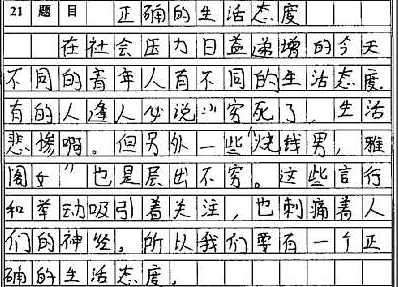 21 题目 正确的生活态度
在社会压力日益递增的今天
不同的青年人有不同的生活态度.
有的人逢人必说"穷死了，生活
悲惨啊。但另外一些"烧钱男，雅
阁女"也是层出不穷。这些言行
和举动吸引着关注，也刺痛着人
们的神经。所以我们要有一个正
确的生活态度.